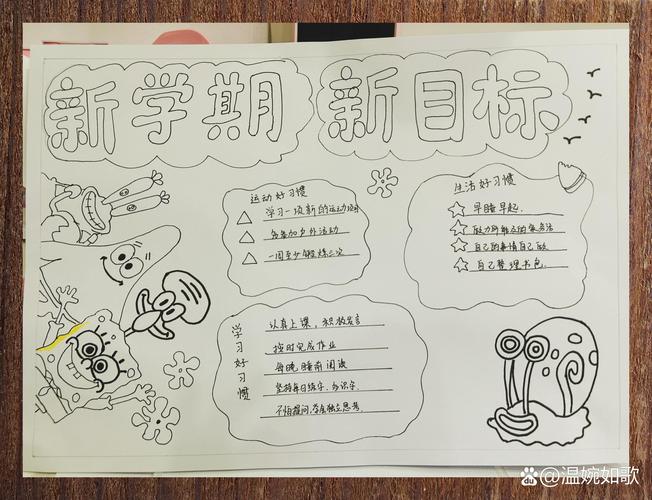 新学期 新目标
运动好习惯
学习一项新的运动项目
多参加户外活动
一周至少锻炼次
生活好习惯
早睡早起.
做力所能及的家务活
自己的事情自己做
自己整理书包.
学习好习惯
认真上课，积极发言
按时完成作业
每晚睡前阅读
坚持每日练字、多识字.
不怕提问,学会独立思考.
@温婉如歌